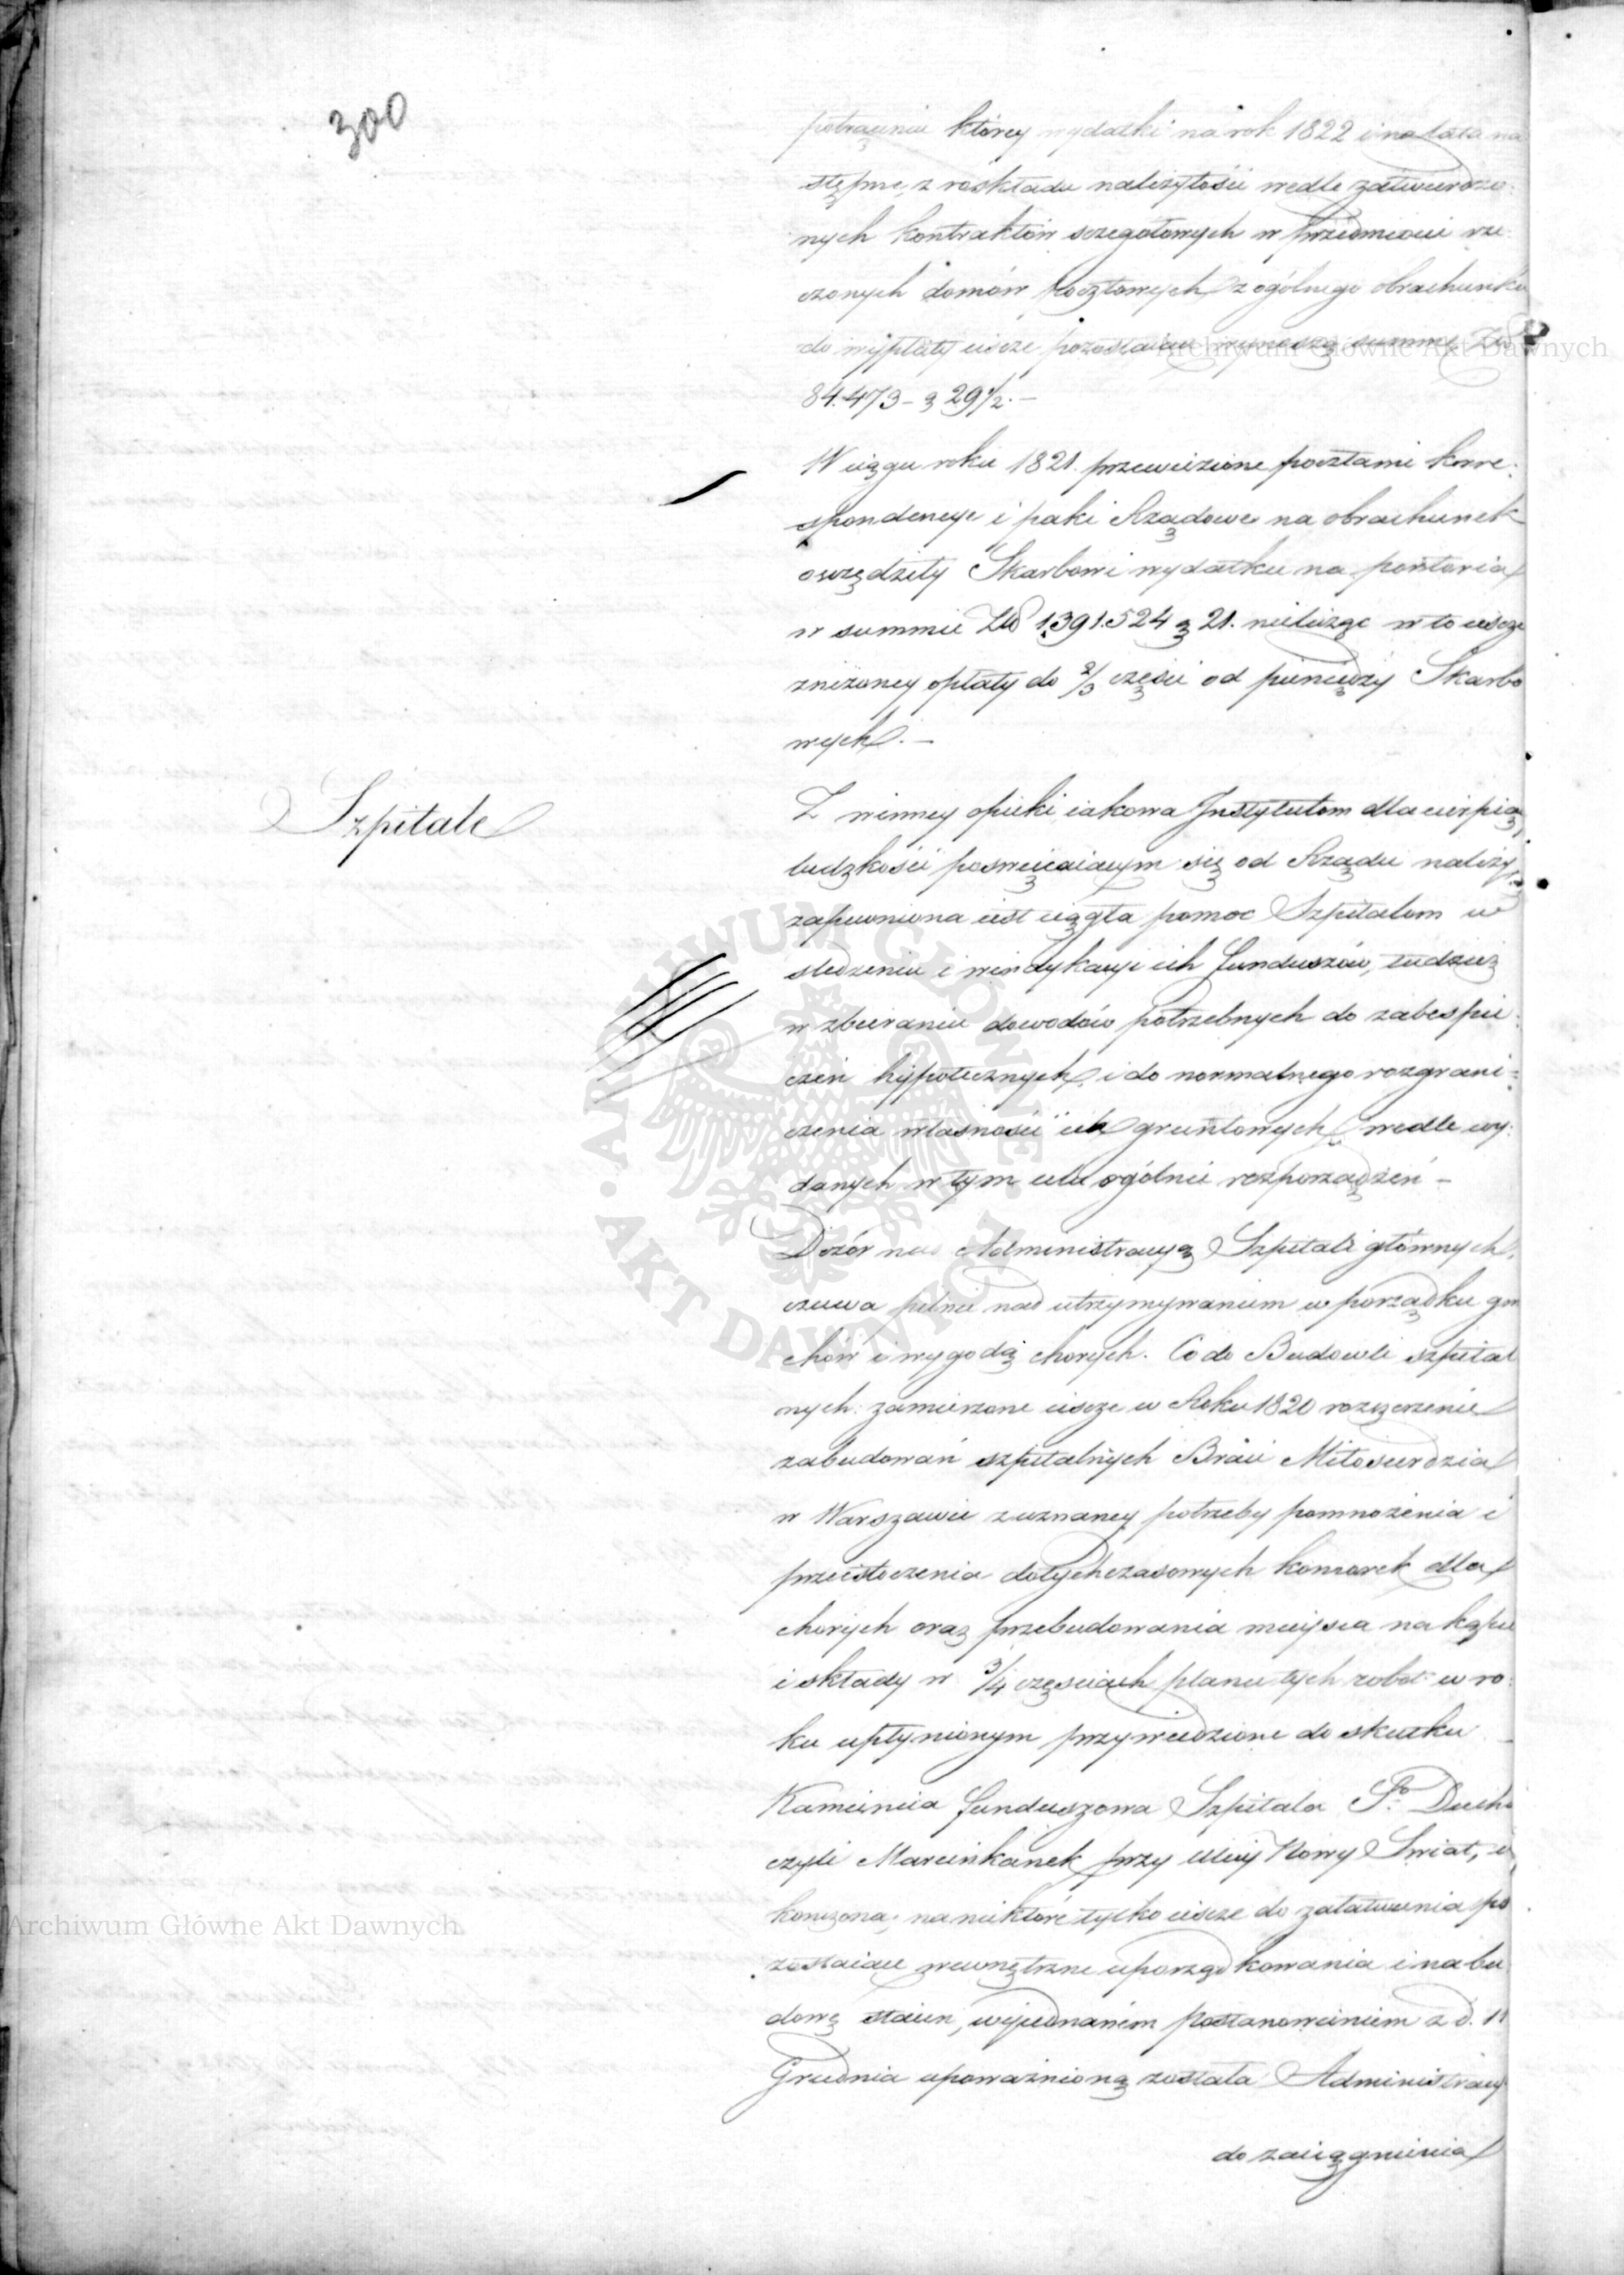 300
potrąceniu którey wydatki na rok 1822 i na lata na
stępne, z rozkładu należytości wedle zatwierdzo:
nych kontraktów szczegołowych w przedmiocie rze:
czonych domów Pocztowych z ogólnego obrachunku
do wypłaty ieszcze pozostaiące wynoszą summę Złp
84.473 – g 29½. –
W ciągu roku 1821. przewiezione pocztami korre:
spondencye i paki Rządowe na obrachunek
oszczędziły Skarbowi wydatku na portoria
w summie Złp 1,391.524 g 21. nielicząc w to ieszcze
zniżoney opłaty do 2/3 części od pieniędzy Skarbo
wych. –
Szpitale
Z winney opieki iakowa Instytutom dla cierpią
ludzkości poswięcaiącym się od Rządu należy,
zapewniona iest ciągła pomoc Szpitalom w
sledzeniu i windykacyi ich funduszów, tudzież
w zbieraniu dowodów potrzebnych do zabespie:
czeń hypotecznych, i do normalnego rozgrani=
czenia własności ich gruntowych, wedle wy:
danych w tym celu ogólnie rozporządzeń –
Dozór nad Administracyą Szpitali głównych,
czuwa pilnie nad utrzymywaniem w porządku gm
chów i wygodą chorych. Co do Budowli szpital
nych: zamierzone ieszcze w Roku 1820 rozszerzenie
zabudowań szpitalnych Braci Miłosierdzia
w Warszawie z uznaney potrzeby pomnożenia i
przeistoczenia dotychczasowych komorek dla
chorych oraz przebudowania mieysca na kąpie
i składy w 3/4 częściach planu tych robot w ro:
ku upłynionym przywiedzione do skutku. –
Kamienica funduszowa Szpitala Sgo Ducha
czyli Marcinkanek przy ulicy Nowy Swiat, u
kończona; na niektóre tylko ieszcze do załatwienia po
zostaiące wewnętrzne uporządkowania i na bu
dowę staien, wyiednanem postanowieniem z d. 11
Grudnia upoważnioną została Administracy
do zaciągnienia
Archiwum Główne Akt Dawnych
Archiwum Główne Akt Dawnych
ARCHIWUM GŁÓWNE · AKT DAWNYCH ·